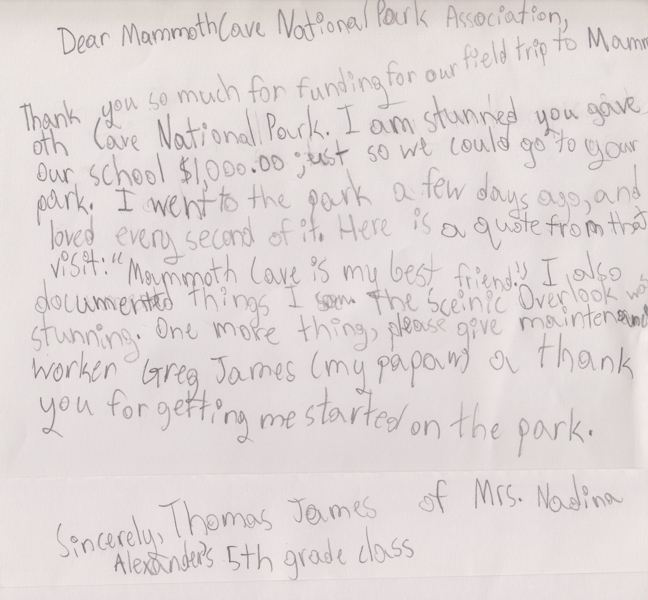 Dear Mammoth Cave National Park Association,
Thank you so much for funding for our field trip to Mamm
oth Cave National Park. I am stunned you gave
our school $1,000.00 just so we could go to your
park. I went to the park a few days ago, and
loved every second of it. Here is a quote from that
visit: "Mammoth Cave is my best friend." I also
documented things I saw. The Sceinic Overlook was
stunning. One more thing, please give maintenand
worker Greg James (my papaw) a thank
you for getting me started on the park.
Sincerely, Thomas James of Mrs. Nadina
Alexander's 5th grade class